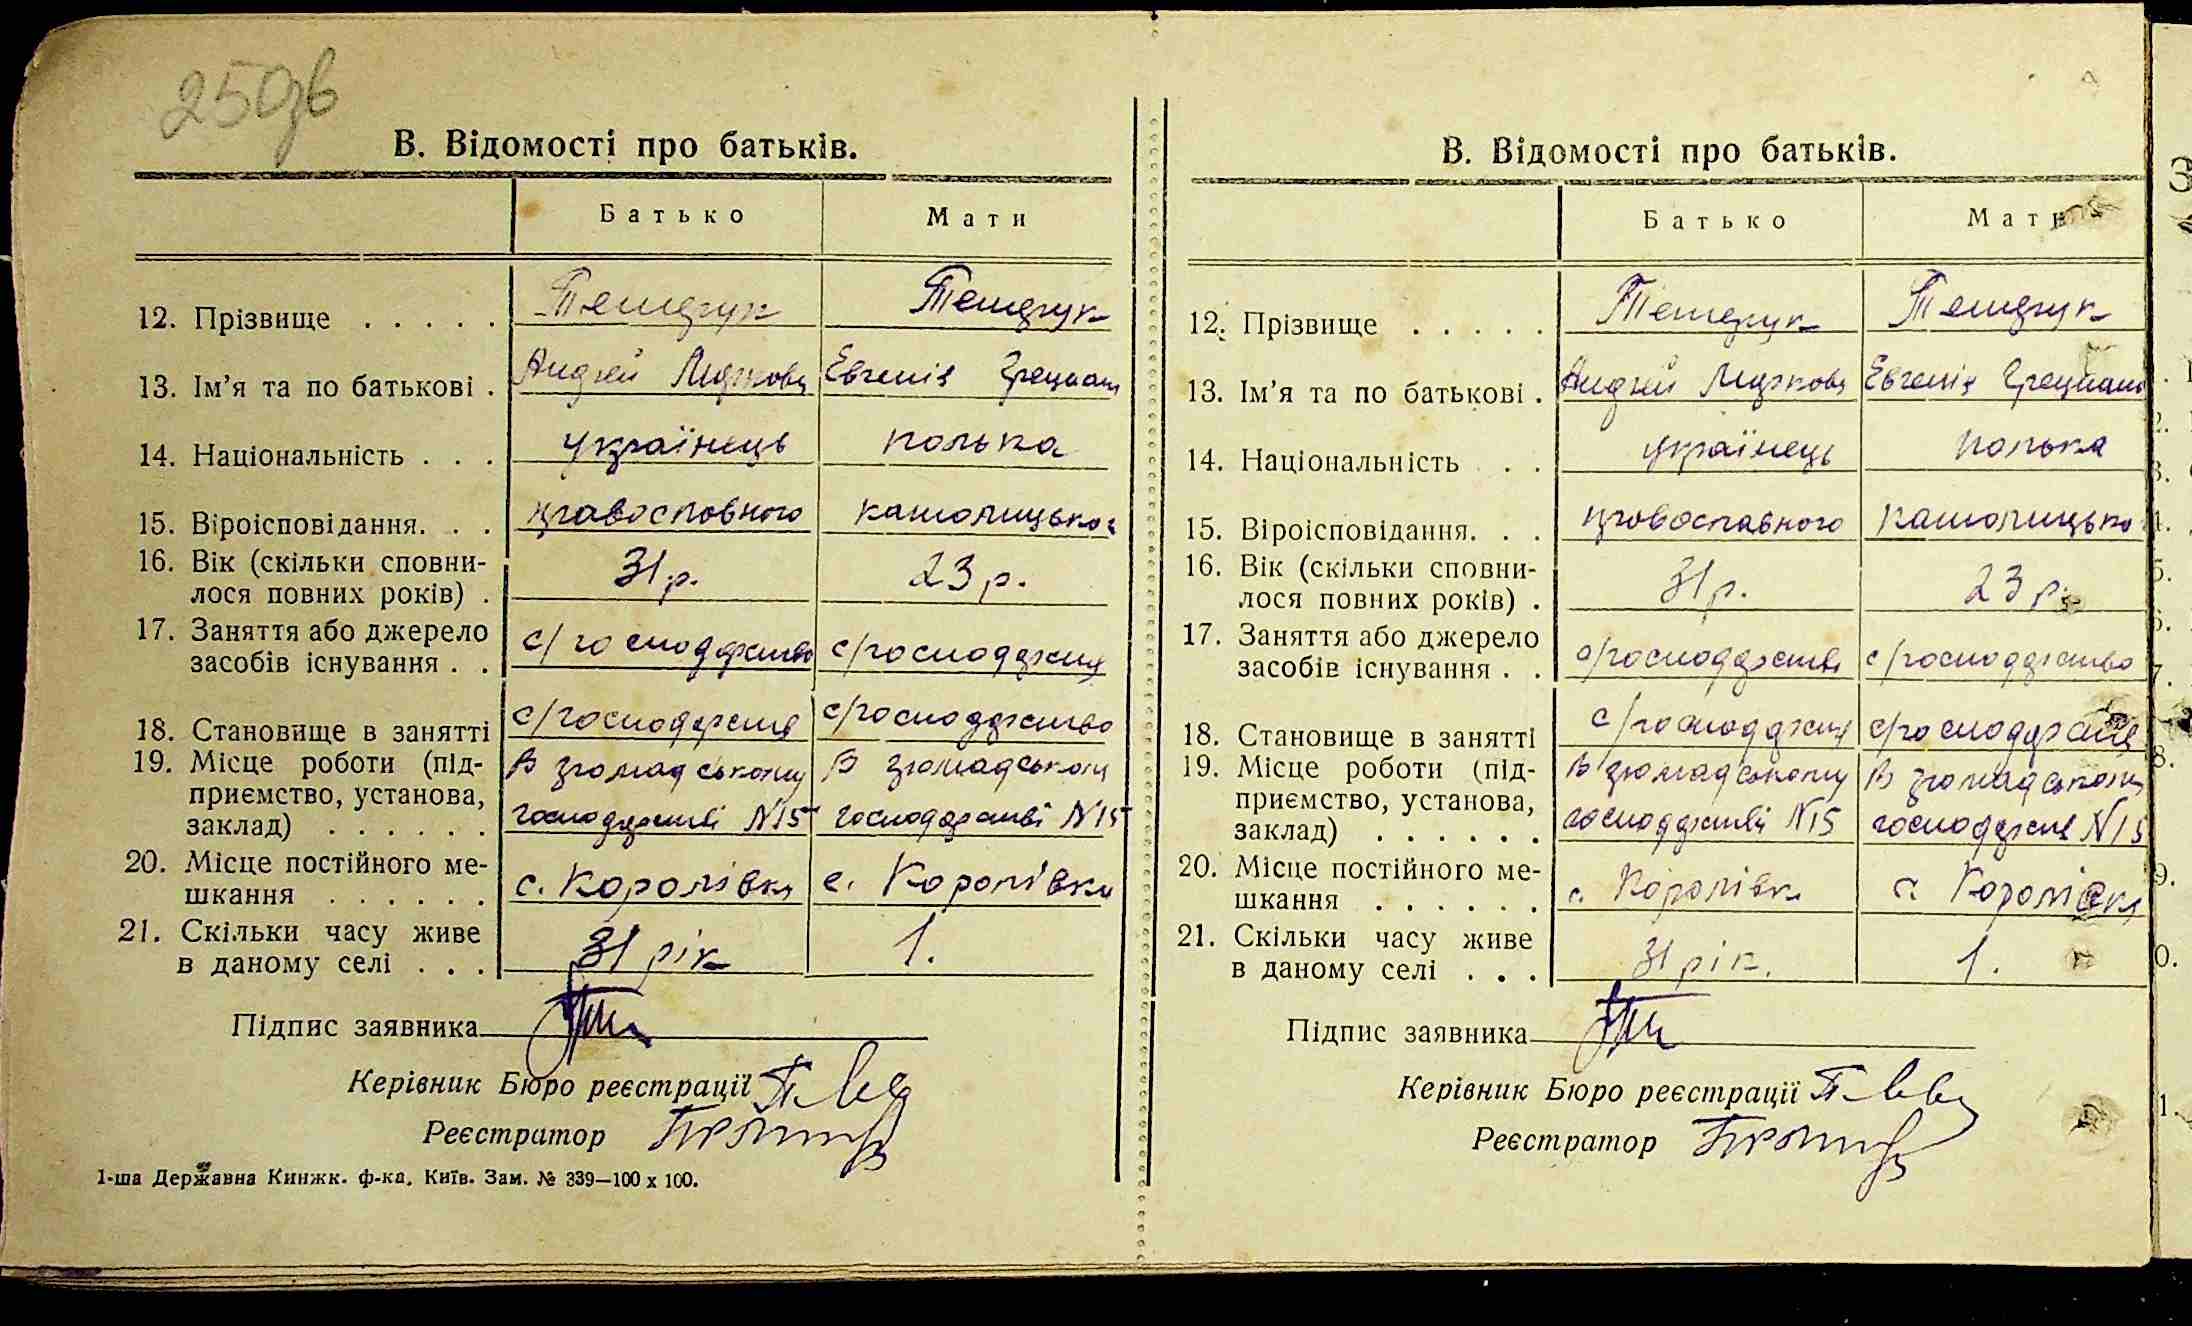 250зв
В. Відомості про батьків.
Батько Мати
12. Прізвище . . . . .
13. Ім'я та по батькові . Андрій Евгенія
14. Національність . . . українець полька
15. Віроісповідання. . . православного католицького
16. Вік (скільки сповни-
лося повних років) . 31 р. 23 р.
17. Заняття або джерело
засобів існування . . с/господарство с/господарств
18. Становище в занятті с/господарств с/господарство
19. Місце роботи (під- В громадському В громадському
приємство, установа, господарстві N15 господарстві N15
заклад) . . . . . .
20. Місце постійного ме-
шкання . . . . . . с. Королівка с. Королівка
21. Скільки часу живе
в даному селі . . . 31 рік 1.
Підпис заявника
Керівник Бюро реєстрації
Реєстратор
1-ша Державна Книжк. ф-ка, Київ. Зам. № 339—100 x 100.
В. Відомості про батьків.
Батько Мати
12. Прізвище . . . . .
13. Ім'я та по батькові . Андрій Евгенія
14. Національність . . українець полька
15. Віроісповідання. . . православного католицько
16. Вік (скільки сповни-
лося повних років) . 31 р. 23 р.
17. Заняття або джерело
засобів існування . . с/господарств с/господарство
18. Становище в занятті с/господарств с/господарств
19. Місце роботи (під- В громадському В громадському
приємство, установа, господарстві N15 господарств N15
заклад) . . . . . .
20. Місце постійного ме-
шкання . . . . . . с. Королівка с. Королівка
21. Скільки часу живе
в даному селі . . . 31 рік. 1.
Підпис заявника
Керівник Бюро реєстрації
Реєстратор